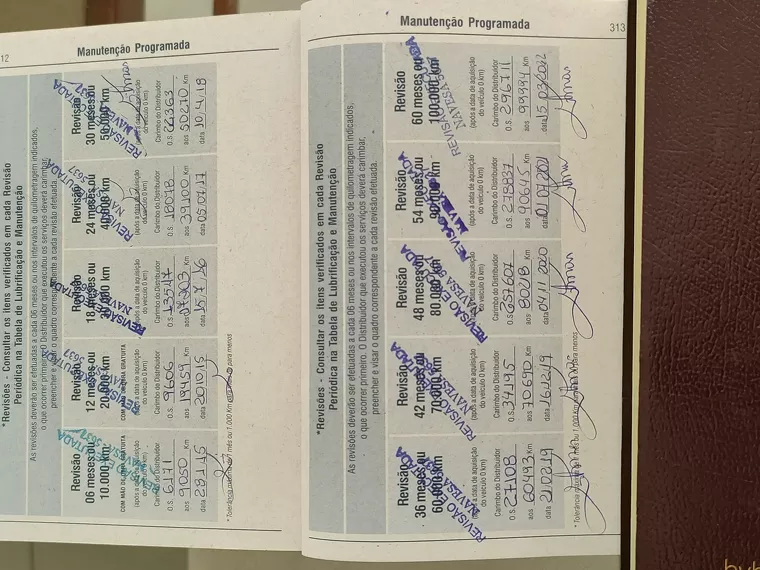 12
Manutenção Programada
*Revisões - Consultar os itens verificados em cada Revisão
Periódica na Tabela de Lubrificação e Manutenção
As revisões deverão ser efetuadas a cada 06 meses ou nos intervalos de quilometragem indicados,
o que ocorrer primeiro. O Distribuidor que executou os serviços deverá carimbar,
preencher e visar o quadro correspondente a cada revisão efetuada.
Revisão
06 meses ou
10.000 km
COM MÃO DE OBRA GRATUITA
(após a data de aquisição
do veículo 0 km)
Carimbo do Distribuidor
O.S. 6171
aos 9050 Km
data 28.1.15
Revisão
12 meses ou
20.000 km
COM MÃO DE OBRA GRATUITA
(após a data de aquisição
do veículo 0 km)
Carimbo do Distribuidor
O.S. 9606
aos 19459 Km
data 20.10.15
Revisão
18 meses ou
(após a data de aquisição
do veículo 0 km)
Carimbo do Distribuidor
O.S.
aos Km
data 15.7.16
Revisão
24 meses ou
40.000 km
(após a data de aquisição
do veículo 0 km)
Carimbo do Distribuidor
O.S. 18078
aos 39100 Km
data 05.07.17
Revisão
30 meses ou
50.000 km
(após a data de aquisição
do veículo 0 km)
Carimbo do Distribuidor
O.S. 22363
aos 50270 Km
data 10/4/18
REVISÃO EXECUTADA
NAVESA 5637
313
Manutenção Programada
*Revisões - Consultar os itens verificados em cada Revisão
Periódica na Tabela de Lubrificação e Manutenção
As revisões deverão ser efetuadas a cada 06 meses ou nos intervalos de quilometragem indicados,
o que ocorrer primeiro. O Distribuidor que executou os serviços deverá carimbar,
preencher e visar o quadro correspondente a cada revisão efetuada.
Revisão
36 meses ou
60.000 km
(após a data de aquisição
do veículo 0 km)
Carimbo do Distribuidor
O.S. 27108
aos 60493 Km
data 21.02.19
Revisão
42 meses ou
70.000 km
(após a data de aquisição
do veículo 0 km)
Carimbo do Distribuidor
O.S. 34195
aos 70690 Km
data 16.12.19
Revisão
48 meses ou
80.000 km
(após a data de aquisição
do veículo 0 km)
Carimbo do Distribuidor
O.S. 257607
aos 80218 Km
data 04.11.2020
Revisão
54 meses ou
90.000 km
(após a data de aquisição
do veículo 0 km)
Carimbo do Distribuidor
O.S. 278837
aos 90645 Km
data 01.07.2021
Revisão
60 meses ou
100.000 km
(após a data de aquisição
do veículo 0 km)
Carimbo do Distribuidor
O.S. 296711
aos 99994 Km
data 15.03/2022
REVISÃO
NAVESA